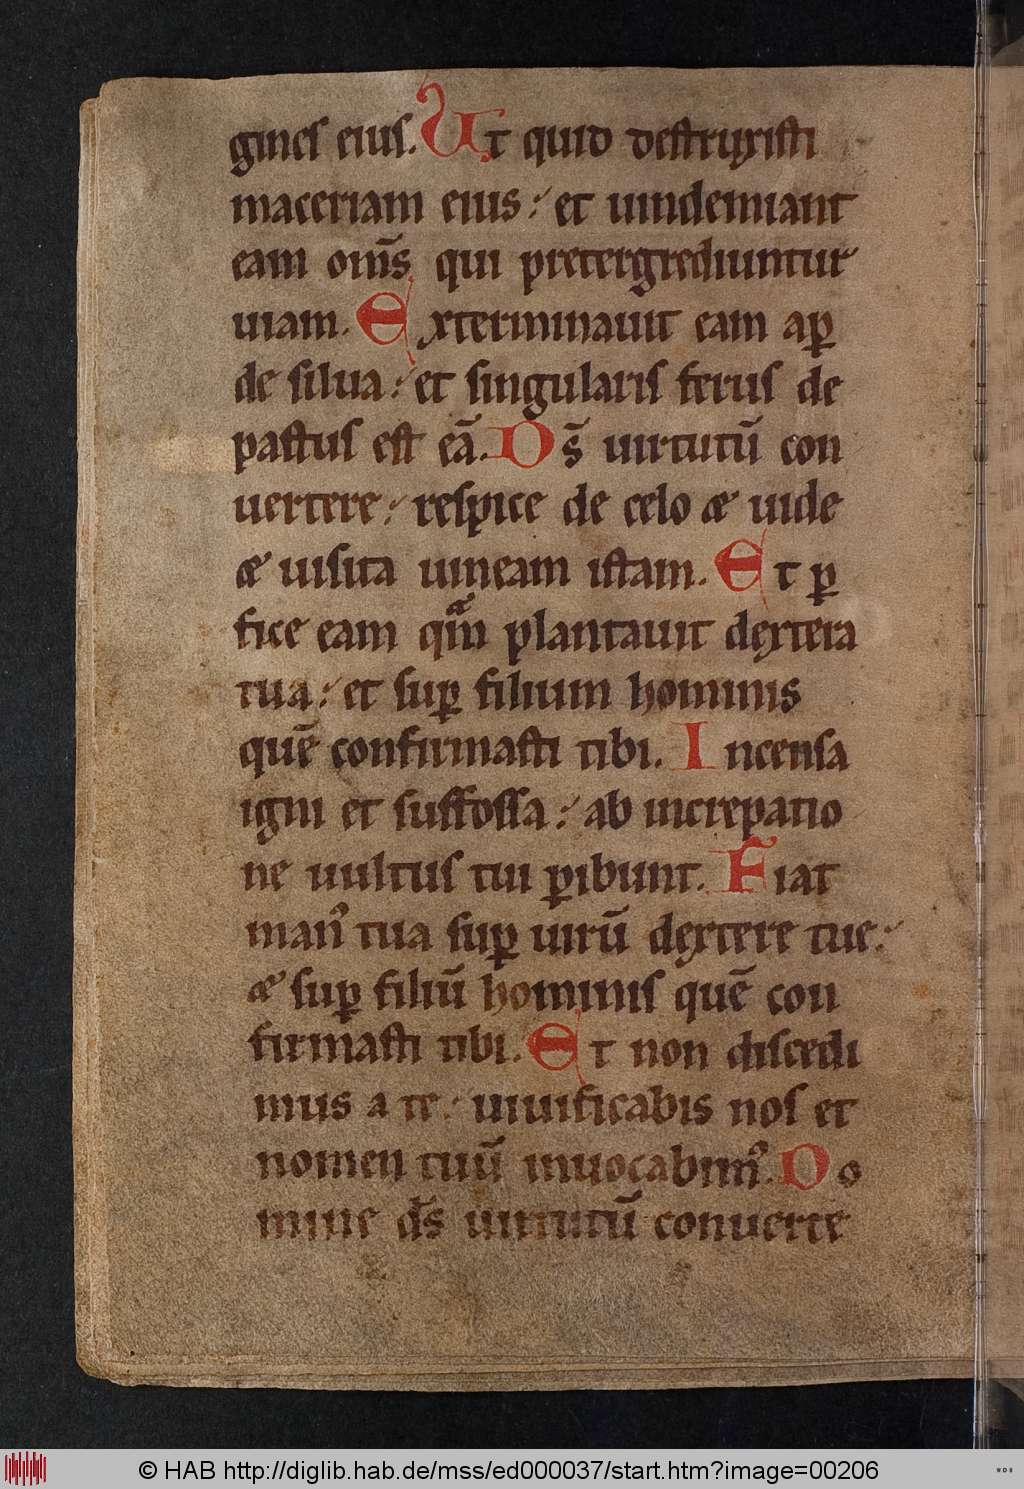 gines eius. Ut quid destruxisti
maceriam eius : et uindemiant
eam om̄s qui pretergrediuntur
uiam. Exterminauit eam aꝑ
de silua : et singularis ferus de
pastus est eā. Ds̄ uirtutū con
uertere : respice de celo æ uide
æ uisita uineam istam. Et ꝑ
fice eam qᷓm plantauit dextera
tua : et suꝑ filium hominis
quē confirmasti tibi. Incensa
igni et suffossa : ab increpatio
ne uultus tui ꝑibunt. Fiat
manꝰ tua suꝑ uirū dextere tue :
æ suꝑ filiū hominis quē con
firmasti tibi. Et non discedi
mus a te : uiuificabis nos et
nomen tuū inuocabimꝰ. Do
mine ds̄ uirtutū conuerte
© HAB http://diglib.hab.de/mss/ed000037/start.htm?image=00206